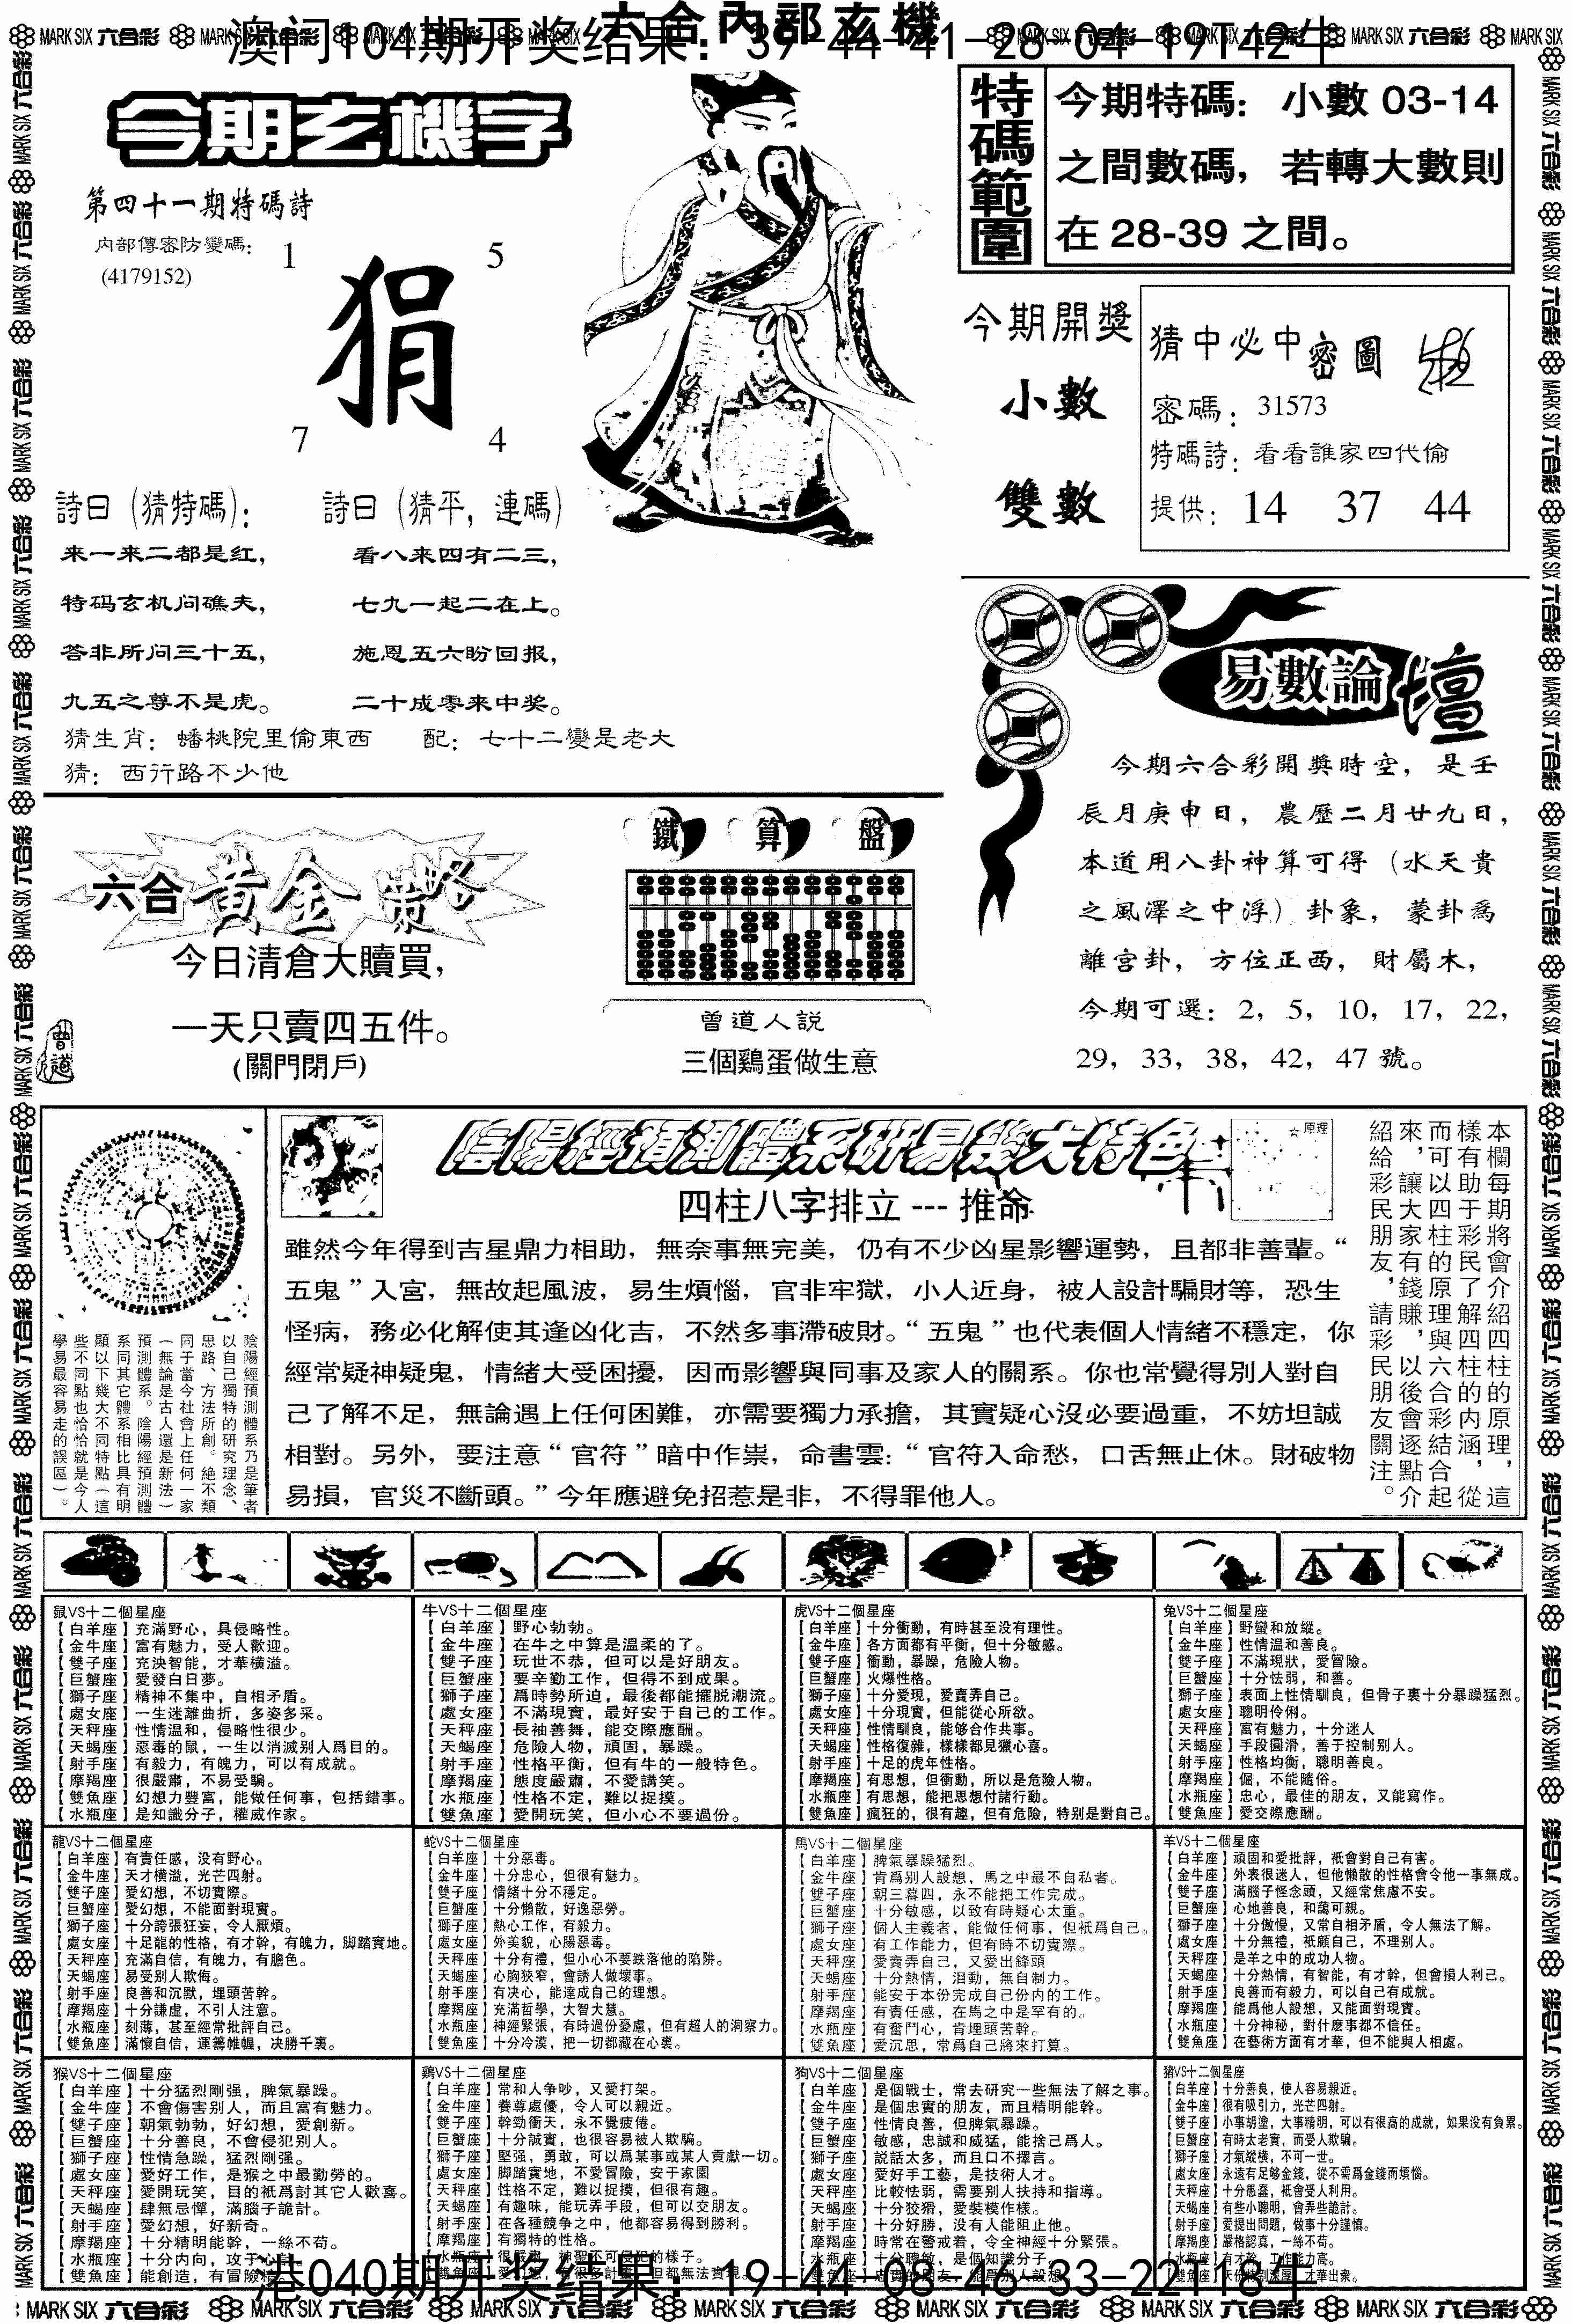 六合內部玄機
澳门104期开奖结果：39-44-41-28-04-19T42牛
今期玄機字
第四十一期特碼詩
内部傳密防變碼：
(4179152)
1
5
狷
7
4
詩曰（猜特碼）：
来一来二都是红，
特码玄机问礁夫，
答非所问三十五，
九五之尊不是虎。
詩曰（猜平，連碼）
看八来四有二三，
七九一起二在上。
施恩五六盼回报，
二十成零来中奖。
猜生肖：蟠桃院里偷東西　配：七十二變是老大
猜：西行路不少他
特碼範圍
今期特碼：小數 03-14
之間數碼，若轉大數則
在 28-39 之間。
今期開獎
小數
雙數
猜中必中密圖
密碼：31573
特碼詩：看看誰家四代偷
提供：14 37 44
易數論壇
今期六合彩開獎時空，是壬
辰月庚申日，農歷二月廿九日，
本道用八卦神算可得（水天貴
之風澤之中浮）卦象，蒙卦爲
離宫卦，方位正西，財屬木，
今期可選：2，5，10，17，22，
29，33，38，42，47 號。
六合黃金策略
今日清倉大贖買，
一天只賣四五件。
(關門閉戶)
曾道
鐵算盤
曾道人説
三個鷄蛋做生意
陰陽經預測體系研易幾大特色
☆原理
四柱八字排立 --- 推命
雖然今年得到吉星鼎力相助，無奈事無完美，仍有不少凶星影響運勢，且都非善輩。“
五鬼”入宮，無故起風波，易生煩惱，官非牢獄，小人近身，被人設計騙財等，恐生
怪病，務必化解使其逢凶化吉，不然多事滯破財。“五鬼”也代表個人情緒不穩定，你
經常疑神疑鬼，情緒大受困擾，因而影響與同事及家人的關系。你也常覺得別人對自
己了解不足，無論遇上任何困難，亦需要獨力承擔，其實疑心沒必要過重，不妨坦誠
相對。另外，要注意“官符”暗中作祟，命書雲：“官符入命愁，口舌無止休。財破物
易損，官災不斷頭。”今年應避免招惹是非，不得罪他人。
本欄每期將會介紹四柱的原理，這
樣有助于彩民了解四柱的内涵，從
而可以四柱的原理與六合彩結合起
來，讓大家有錢賺，以後會逐點介
紹給彩民朋友，請彩民朋友關注。
陰陽經預測體系乃是筆者
以自己獨特的研究理念、
思路、方法所創。絶不類
同于當今社會上任何一家
（無論是古人還是新法）
預測體系。陰陽經預測體
系同其它體系相比具有明
顯以下幾大不同特點（這
些不同點也恰恰就是今人
學易最容易走的誤區）。
鼠VS十二個星座
【白羊座】充滿野心，具侵略性。
【金牛座】富有魅力，受人歡迎。
【雙子座】充泱智能，才華横溢。
【巨蟹座】愛發白日夢。
【獅子座】精神不集中，自相矛盾。
【處女座】一生迷離曲折，多姿多采。
【天秤座】性情温和，侵略性很少。
【天蝎座】惡毒的鼠，一生以消滅别人爲目的。
【射手座】有毅力，有魄力，可以有成就。
【摩羯座】很嚴肅，不易受騙。
【雙魚座】幻想力豐富，能做任何事，包括錯事。
【水瓶座】是知識分子，權威作家。
牛VS十二個星座
【白羊座】野心勃勃。
【金牛座】在牛之中算是温柔的了。
【雙子座】玩世不恭，但可以是好朋友。
【巨蟹座】要辛勤工作，但得不到成果。
【獅子座】爲時勢所迫，最後都能擺脱潮流。
【處女座】不滿現實，最好安于自己的工作。
【天秤座】長袖善舞，能交際應酬。
【天蝎座】危險人物，頑固，暴躁。
【射手座】性格平衡，但有牛的一般特色。
【摩羯座】態度嚴肅，不愛講笑。
【水瓶座】性格不定，難以捉摸。
【雙魚座】愛開玩笑，但小心不要過份。
虎VS十二個星座
【白羊座】十分衝動，有時甚至没有理性。
【金牛座】各方面都有平衡，但十分敏感。
【雙子座】衝動，暴躁，危險人物。
【巨蟹座】火爆性格。
【獅子座】十分愛現，愛賣弄自己。
【處女座】十分現實，但能從心所欲。
【天秤座】性情馴良，能够合作共事。
【天蝎座】性格復雜，樣樣都見獵心喜。
【射手座】十足的虎年性格。
【摩羯座】有思想，但衝動，所以是危險人物。
【水瓶座】有思想，能把思想付諸行動。
【雙魚座】瘋狂的，很有趣，但有危險，特别是對自己。
兔VS十二個星座
【白羊座】野蠻和放縱。
【金牛座】性情温和善良。
【雙子座】不滿現狀，愛冒險。
【巨蟹座】十分怯弱，和善。
【獅子座】表面上性情馴良，但骨子裏十分暴躁猛烈。
【處女座】聰明伶俐。
【天秤座】富有魅力，十分迷人
【天蝎座】手段圓滑，善于控制别人。
【射手座】性格均衡，聰明善良。
【摩羯座】倔，不能隨俗。
【水瓶座】忠心，最佳的朋友，又能寫作。
【雙魚座】愛交際應酬。
龍VS十二個星座
【白羊座】有責任感，没有野心。
【金牛座】天才横溢，光芒四射。
【雙子座】愛幻想，不切實際。
【巨蟹座】愛幻想，不能面對現實。
【獅子座】十分誇張狂妄，令人厭煩。
【處女座】十足龍的性格，有才幹，有魄力，脚踏實地。
【天秤座】充滿自信，有魄力，有膽色。
【天蝎座】易受别人欺侮。
【射手座】良善和沉默，埋頭苦幹。
【摩羯座】十分謙虚，不引人注意。
【水瓶座】刻薄，甚至經常批評自己。
【雙魚座】滿懷自信，運籌帷幄，决勝千裏。
蛇VS十二個星座
【白羊座】十分惡毒。
【金牛座】十分忠心，但很有魅力。
【雙子座】情緒十分不穩定。
【巨蟹座】十分懶散，好逸惡勞。
【獅子座】熱心工作，有毅力。
【處女座】外美貌，心腸惡毒。
【天秤座】十分有禮，但小心不要跌落他的陷阱。
【天蝎座】心胸狹窄，會誘人做壞事。
【射手座】有决心，能達成自己的理想。
【摩羯座】充滿哲學，大智大慧。
【水瓶座】神經緊張，有時過份憂慮，但有超人的洞察力。
【雙魚座】十分冷漠，把一切都藏在心裏。
馬VS十二個星座
【白羊座】脾氣暴躁猛烈。
【金牛座】肯爲别人設想，馬之中最不自私者。
【雙子座】朝三暮四，永不能把工作完成。
【巨蟹座】十分敏感，以致有時疑心太重。
【獅子座】個人主義者，能做任何事，但衹爲自己。
【處女座】有工作能力，但有時不切實際。
【天秤座】愛賣弄自己，又愛出鋒頭
【天蝎座】十分熱情，泪動，無自制力。
【射手座】能安于本份完成自己份内的工作。
【摩羯座】有責任感，在馬之中是罕有的。
【水瓶座】有奮鬥心，肯埋頭苦幹。
【雙魚座】愛沉思，常爲自己將來打算。
羊VS十二個星座
【白羊座】頑固和愛批評，衹會對自己有害。
【金牛座】外表很迷人，但他懶散的性格會令他一事無成。
【雙子座】滿腦子怪念頭，又經常焦慮不安。
【巨蟹座】心地善良，和藹可親。
【獅子座】十分傲慢，又常自相矛盾，令人無法了解。
【處女座】十分無禮，衹顧自己，不理别人。
【天秤座】是羊之中的成功人物。
【天蝎座】十分熱情，有智能，有才幹，但會損人利己。
【射手座】良善而有毅力，可以自己有成就。
【摩羯座】能爲他人設想，又能面對現實。
【水瓶座】十分神秘，對什麽事都不信任。
【雙魚座】在藝術方面有才華，但不能與人相處。
猴VS十二個星座
【白羊座】十分猛烈剛强，脾氣暴躁。
【金牛座】不會傷害别人，而且富有魅力。
【雙子座】朝氣勃勃，好幻想，愛創新。
【巨蟹座】十分善良，不會侵犯别人。
【獅子座】性情急躁，猛烈剛强。
【處女座】愛好工作，是猴之中最勤勞的。
【天秤座】愛開玩笑，目的衹爲討其它人歡喜。
【天蝎座】肆無忌憚，滿腦子詭計。
【射手座】愛幻想，好新奇。
【摩羯座】十分精明能幹，一絲不苟。
【水瓶座】十分内向，攻于心
【雙魚座】能創造，有冒險
鷄VS十二個星座
【白羊座】常和人争吵，又愛打架。
【金牛座】養尊處優，令人可以親近。
【雙子座】幹勁衝天，永不覺疲倦。
【巨蟹座】十分誠實，也很容易被人欺騙。
【獅子座】堅强，勇敢，可以爲某事或某人貢獻一切。
【處女座】脚踏實地，不愛冒險，安于家園
【天秤座】性格不定，難以捉摸，但很有趣。
【天蝎座】有趣味，能玩弄手段，但可以交朋友。
【射手座】在各種競争之中，他都容易得到勝利。
【摩羯座】有獨特的性格。
【水瓶座】很嚴肅，神聖不可侵犯的樣子。
【雙魚座】愛幻想，有很多計畫，但都無法實現。
狗VS十二個星座
【白羊座】是個戰士，常去研究一些無法了解之事。
【金牛座】是個忠實的朋友，而且精明能幹。
【雙子座】性情良善，但脾氣暴躁。
【巨蟹座】敏感，忠誠和威猛，能捨己爲人。
【獅子座】説話太多，而且口不擇言。
【處女座】愛好手工藝，是技術人才。
【天秤座】比較怯弱，需要别人扶持和指導。
【天蝎座】十分狡猾，愛裝模作樣。
【射手座】十分好勝，没有人能阻止他。
【摩羯座】時常在警戒着，令全神經十分緊張。
【水瓶座】十分聰敏，是個知識分子。
【雙魚座】忠實的朋友，能爲别人設想。
猪VS十二個星座
【白羊座】十分善良，使人容易親近。
【金牛座】很有吸引力，光芒四射。
【雙子座】小事胡塗，大事精明，可以有很高的成就，如果没有負累。
【巨蟹座】有時太老實，而受人欺騙。
【獅子座】才氣縱横，不可一世。
【處女座】永遠有足够金錢，從不需爲金錢而煩惱。
【天秤座】十分愚蠢，衹會受人利用。
【天蝎座】有些小聰明，會弄些詭計。
【射手座】愛提出問題，做事十分謹慎。
【摩羯座】嚴格認真，一絲不苟。
【水瓶座】有才幹，工作能力高。
【雙魚座】天份特别深厚，才華出衆。
港040期开奖结果：19-44-08-46-33-22T18牛
MARK SIX 六合彩 MARK SIX 六合彩 MARK SIX 六合彩 MARK SIX 六合彩 MARK SIX 六合彩 MARK SIX 六合彩 MARK SIX 六合彩